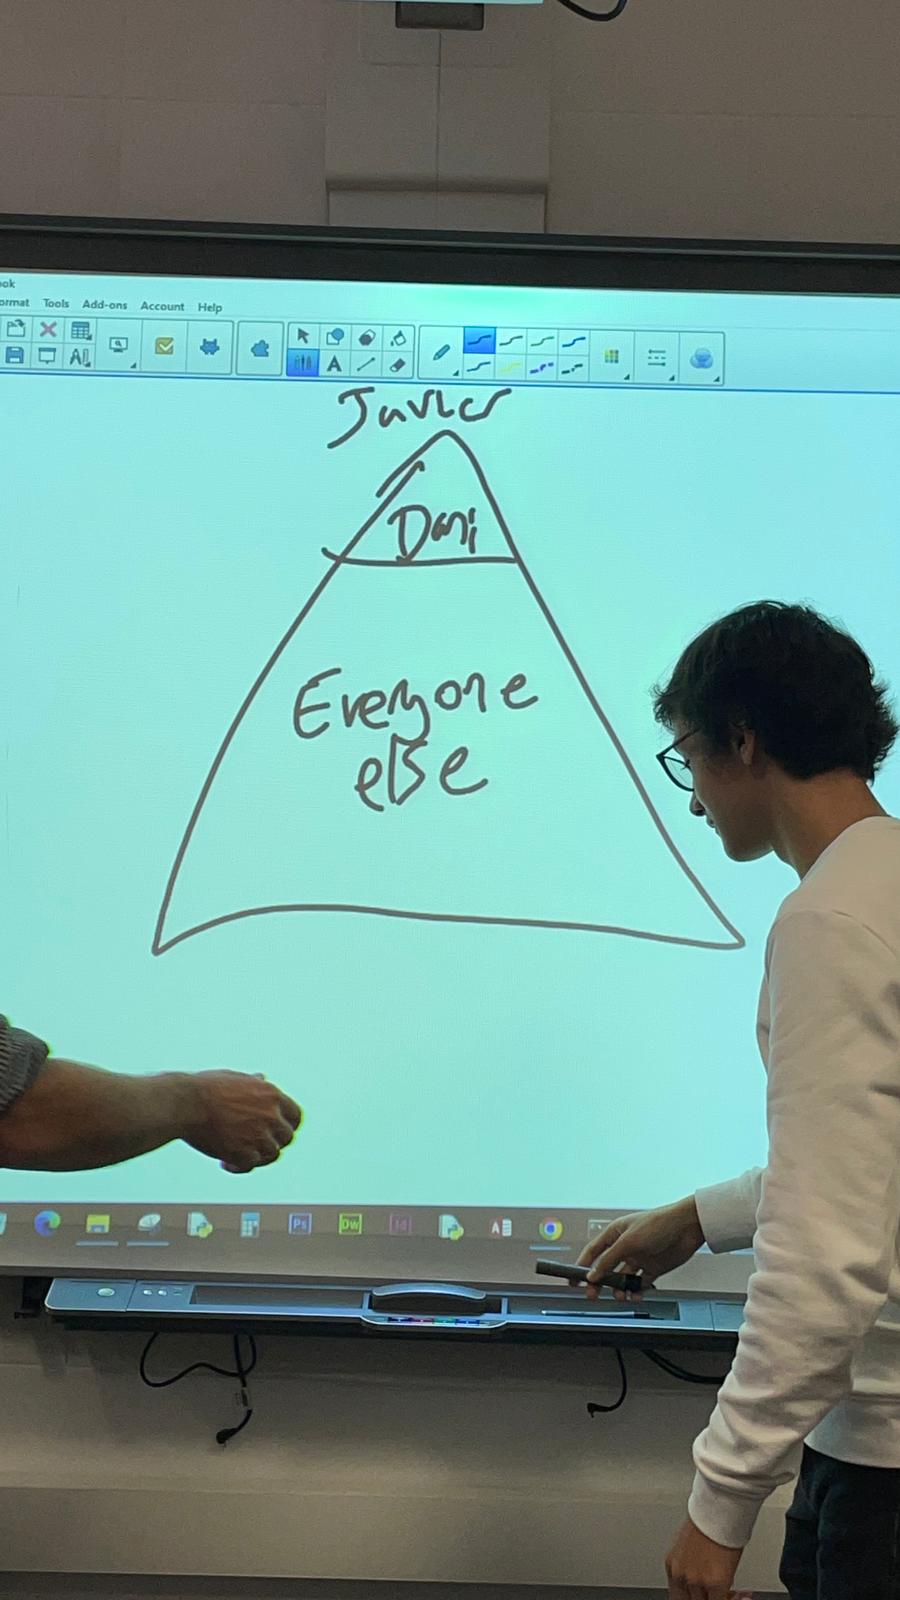 ok
ormat Tools Add-ons Account Help
A
Javier
Dani
Everyone
else
Ps Dw Id A